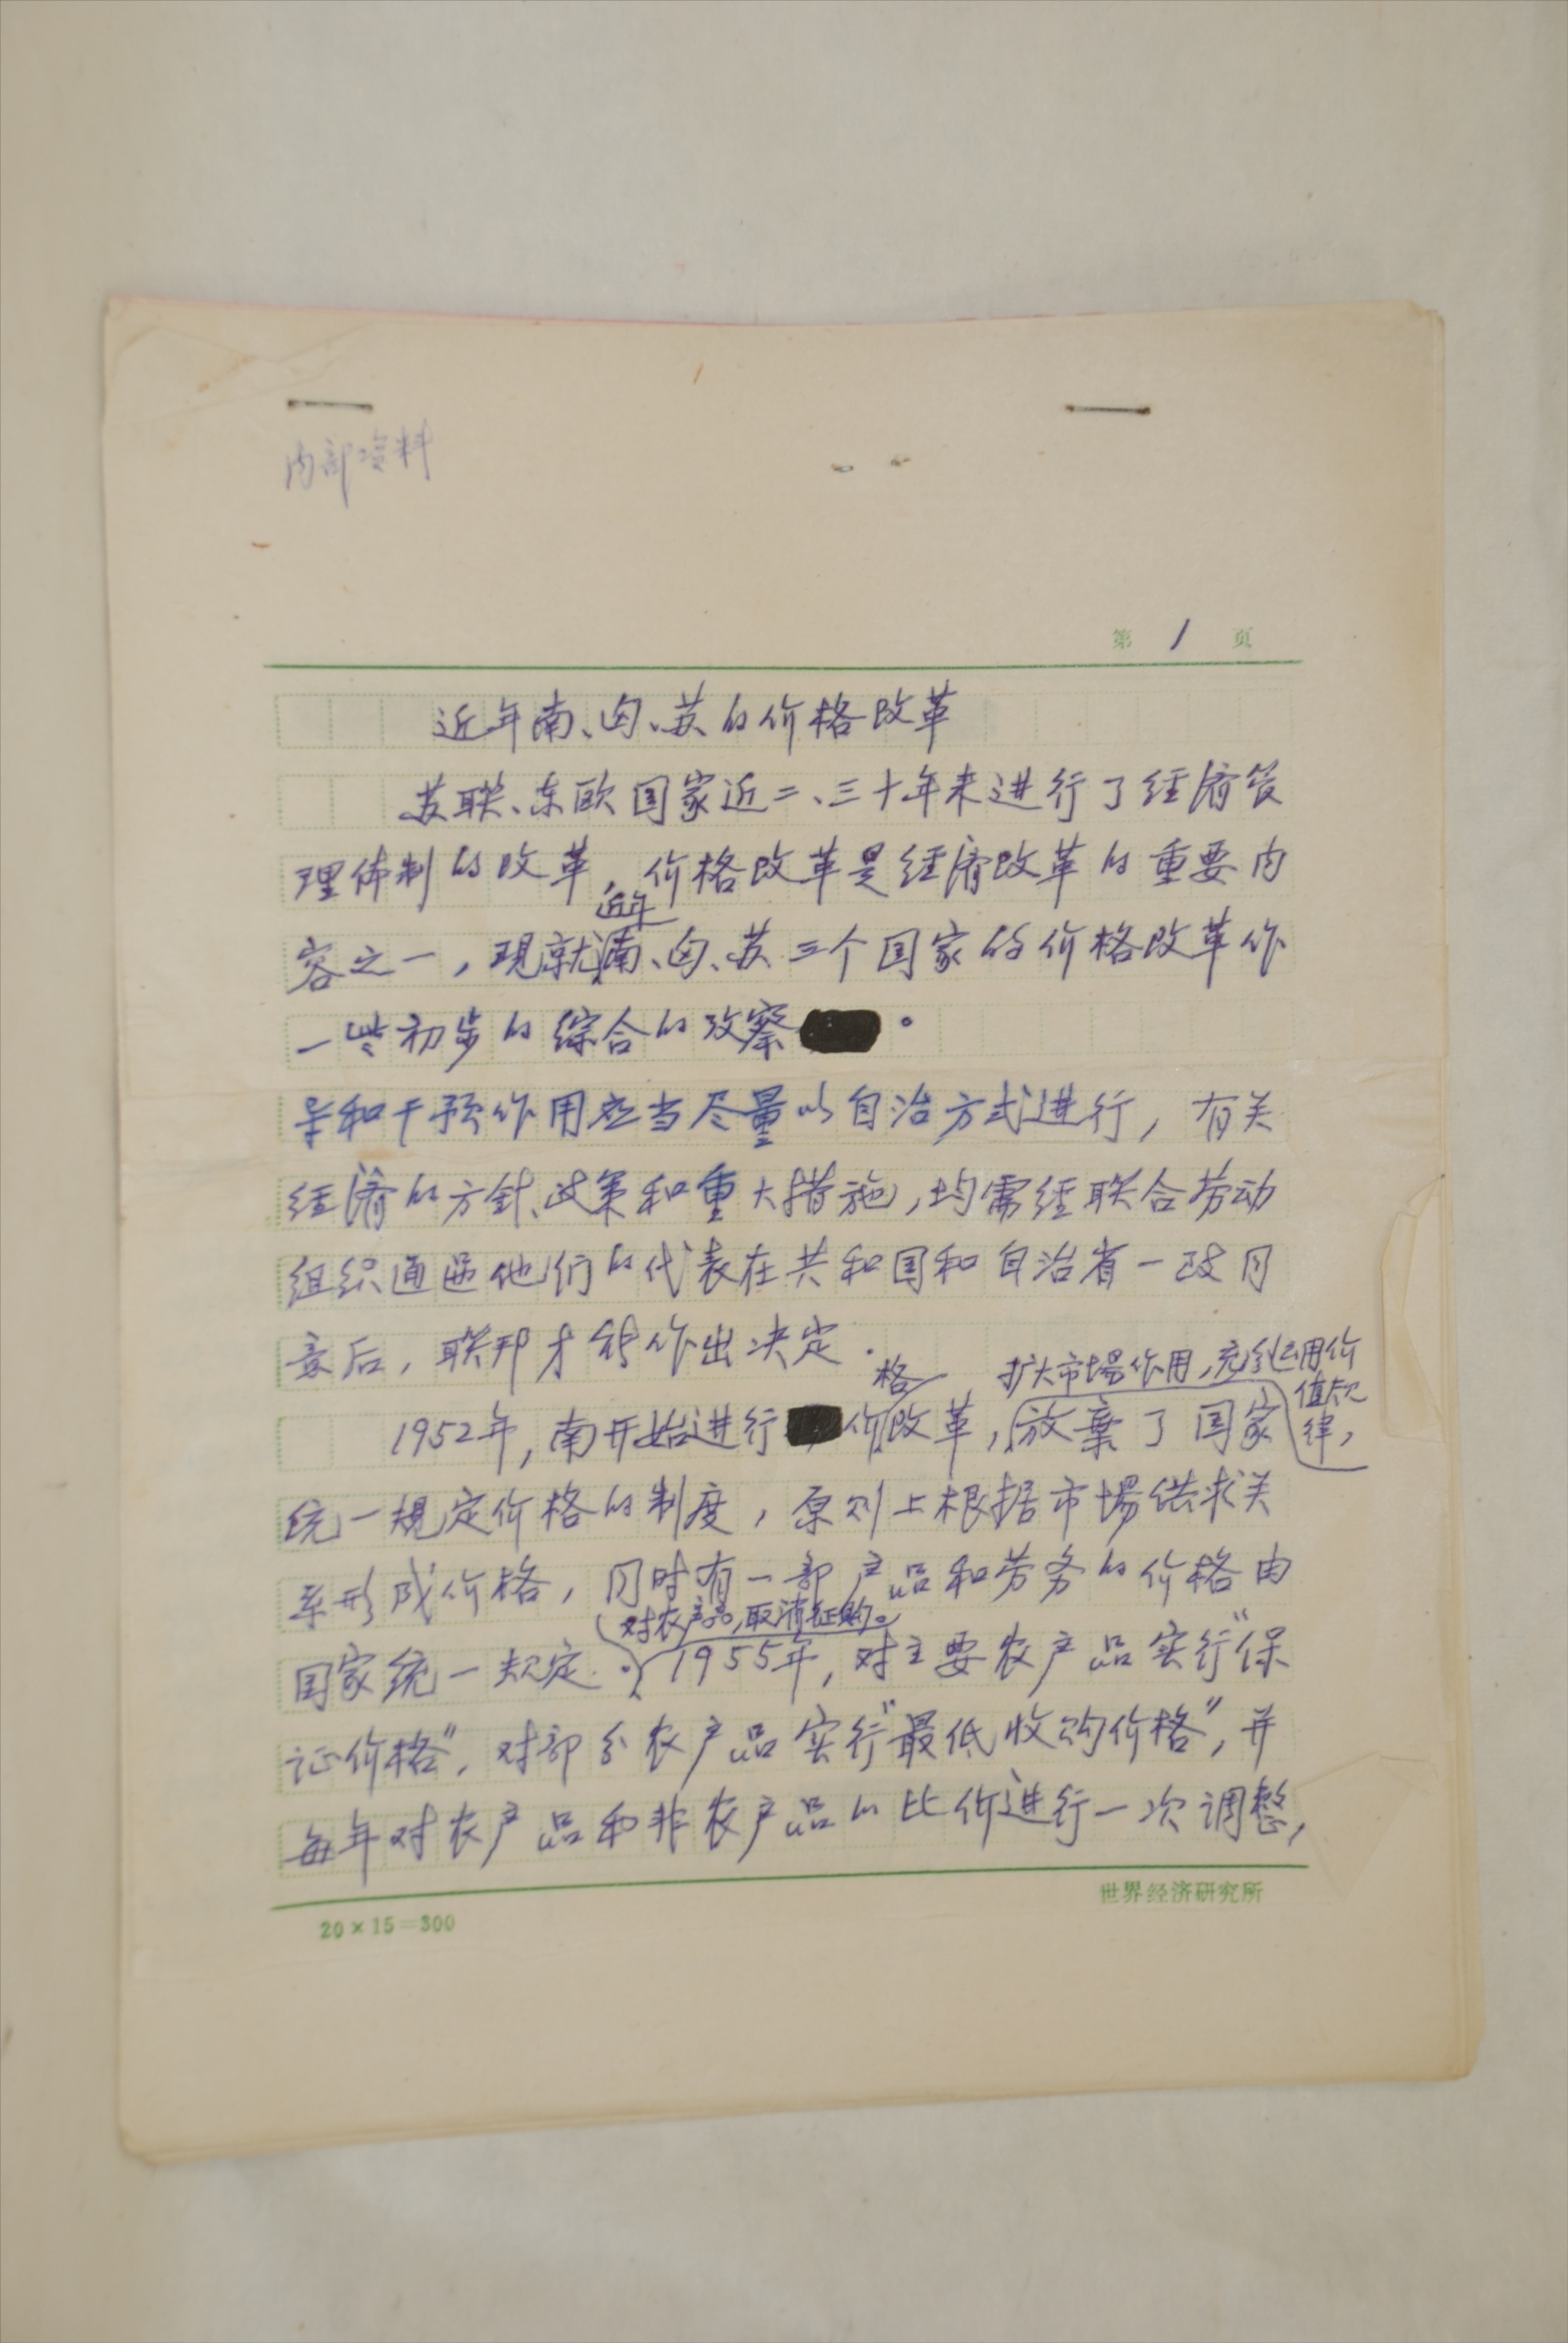 内部资料
第 1 页
近年南、匈、苏的价格改革
苏联、东欧国家近二、三十年来进行了经济管
理体制的改革，价格改革是经济改革的重要内
近年
容之一，现就南、匈、苏三个国家的价格改革作
一些初步的综合的考察。
导和干预作用应当尽量以自治方式进行，有关
经济的方针、政策和重大措施，均需经联合劳动
组织通过他们的代表在共和国和自治省一致同
意后，联邦才能作出决定．
格 扩大市场作用，充分运用价
值规
1952年，南开始进行价改革，放弃了国家
律，
统一规定价格的制度，原则上根据市场供求关
系形成价格，同时有一部产品和劳务的价格由
对农产品，取消征购。
国家统一规定．1955年，对主要农产品实行“保
证价格”，对部分农产品实行“最低收购价格”，并
每年对农产品和非农产品的比价进行一次调整，
世界经济研究所
20×15=300